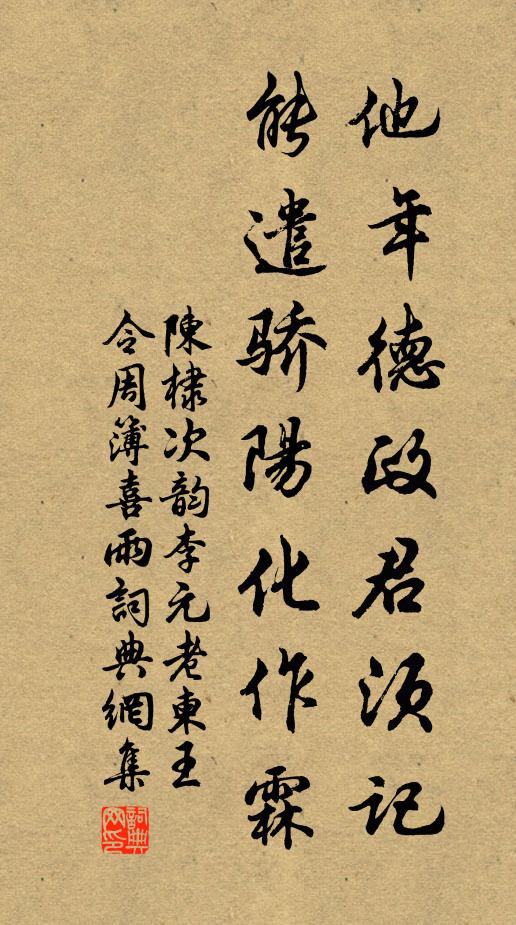 他年德政君须记
能遣骄陽化作霖
陳棣次韵李元老東王
令周簿喜雨詞典網集
詞典网印